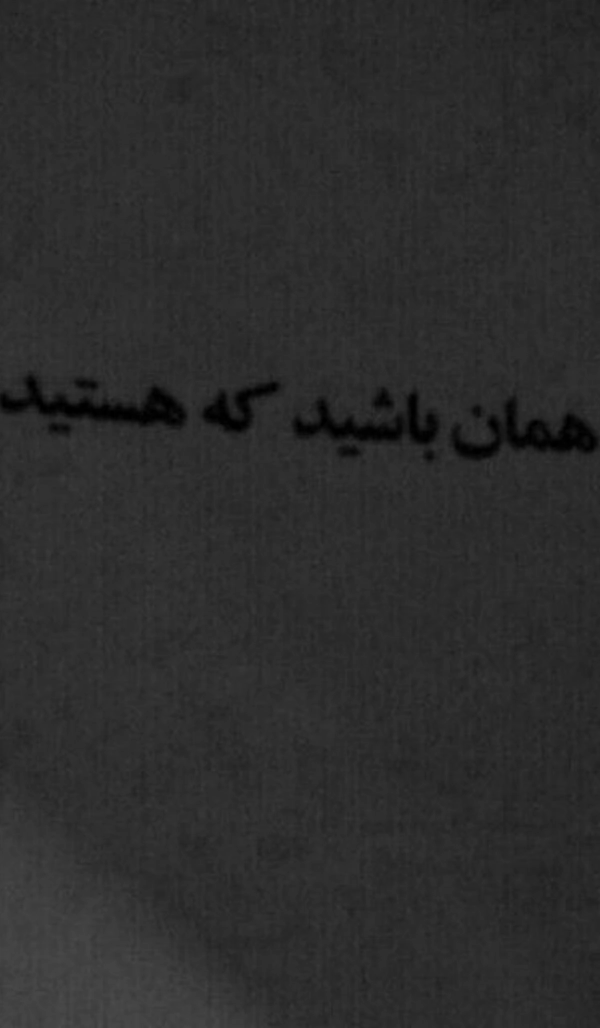 همان باشید که هستید